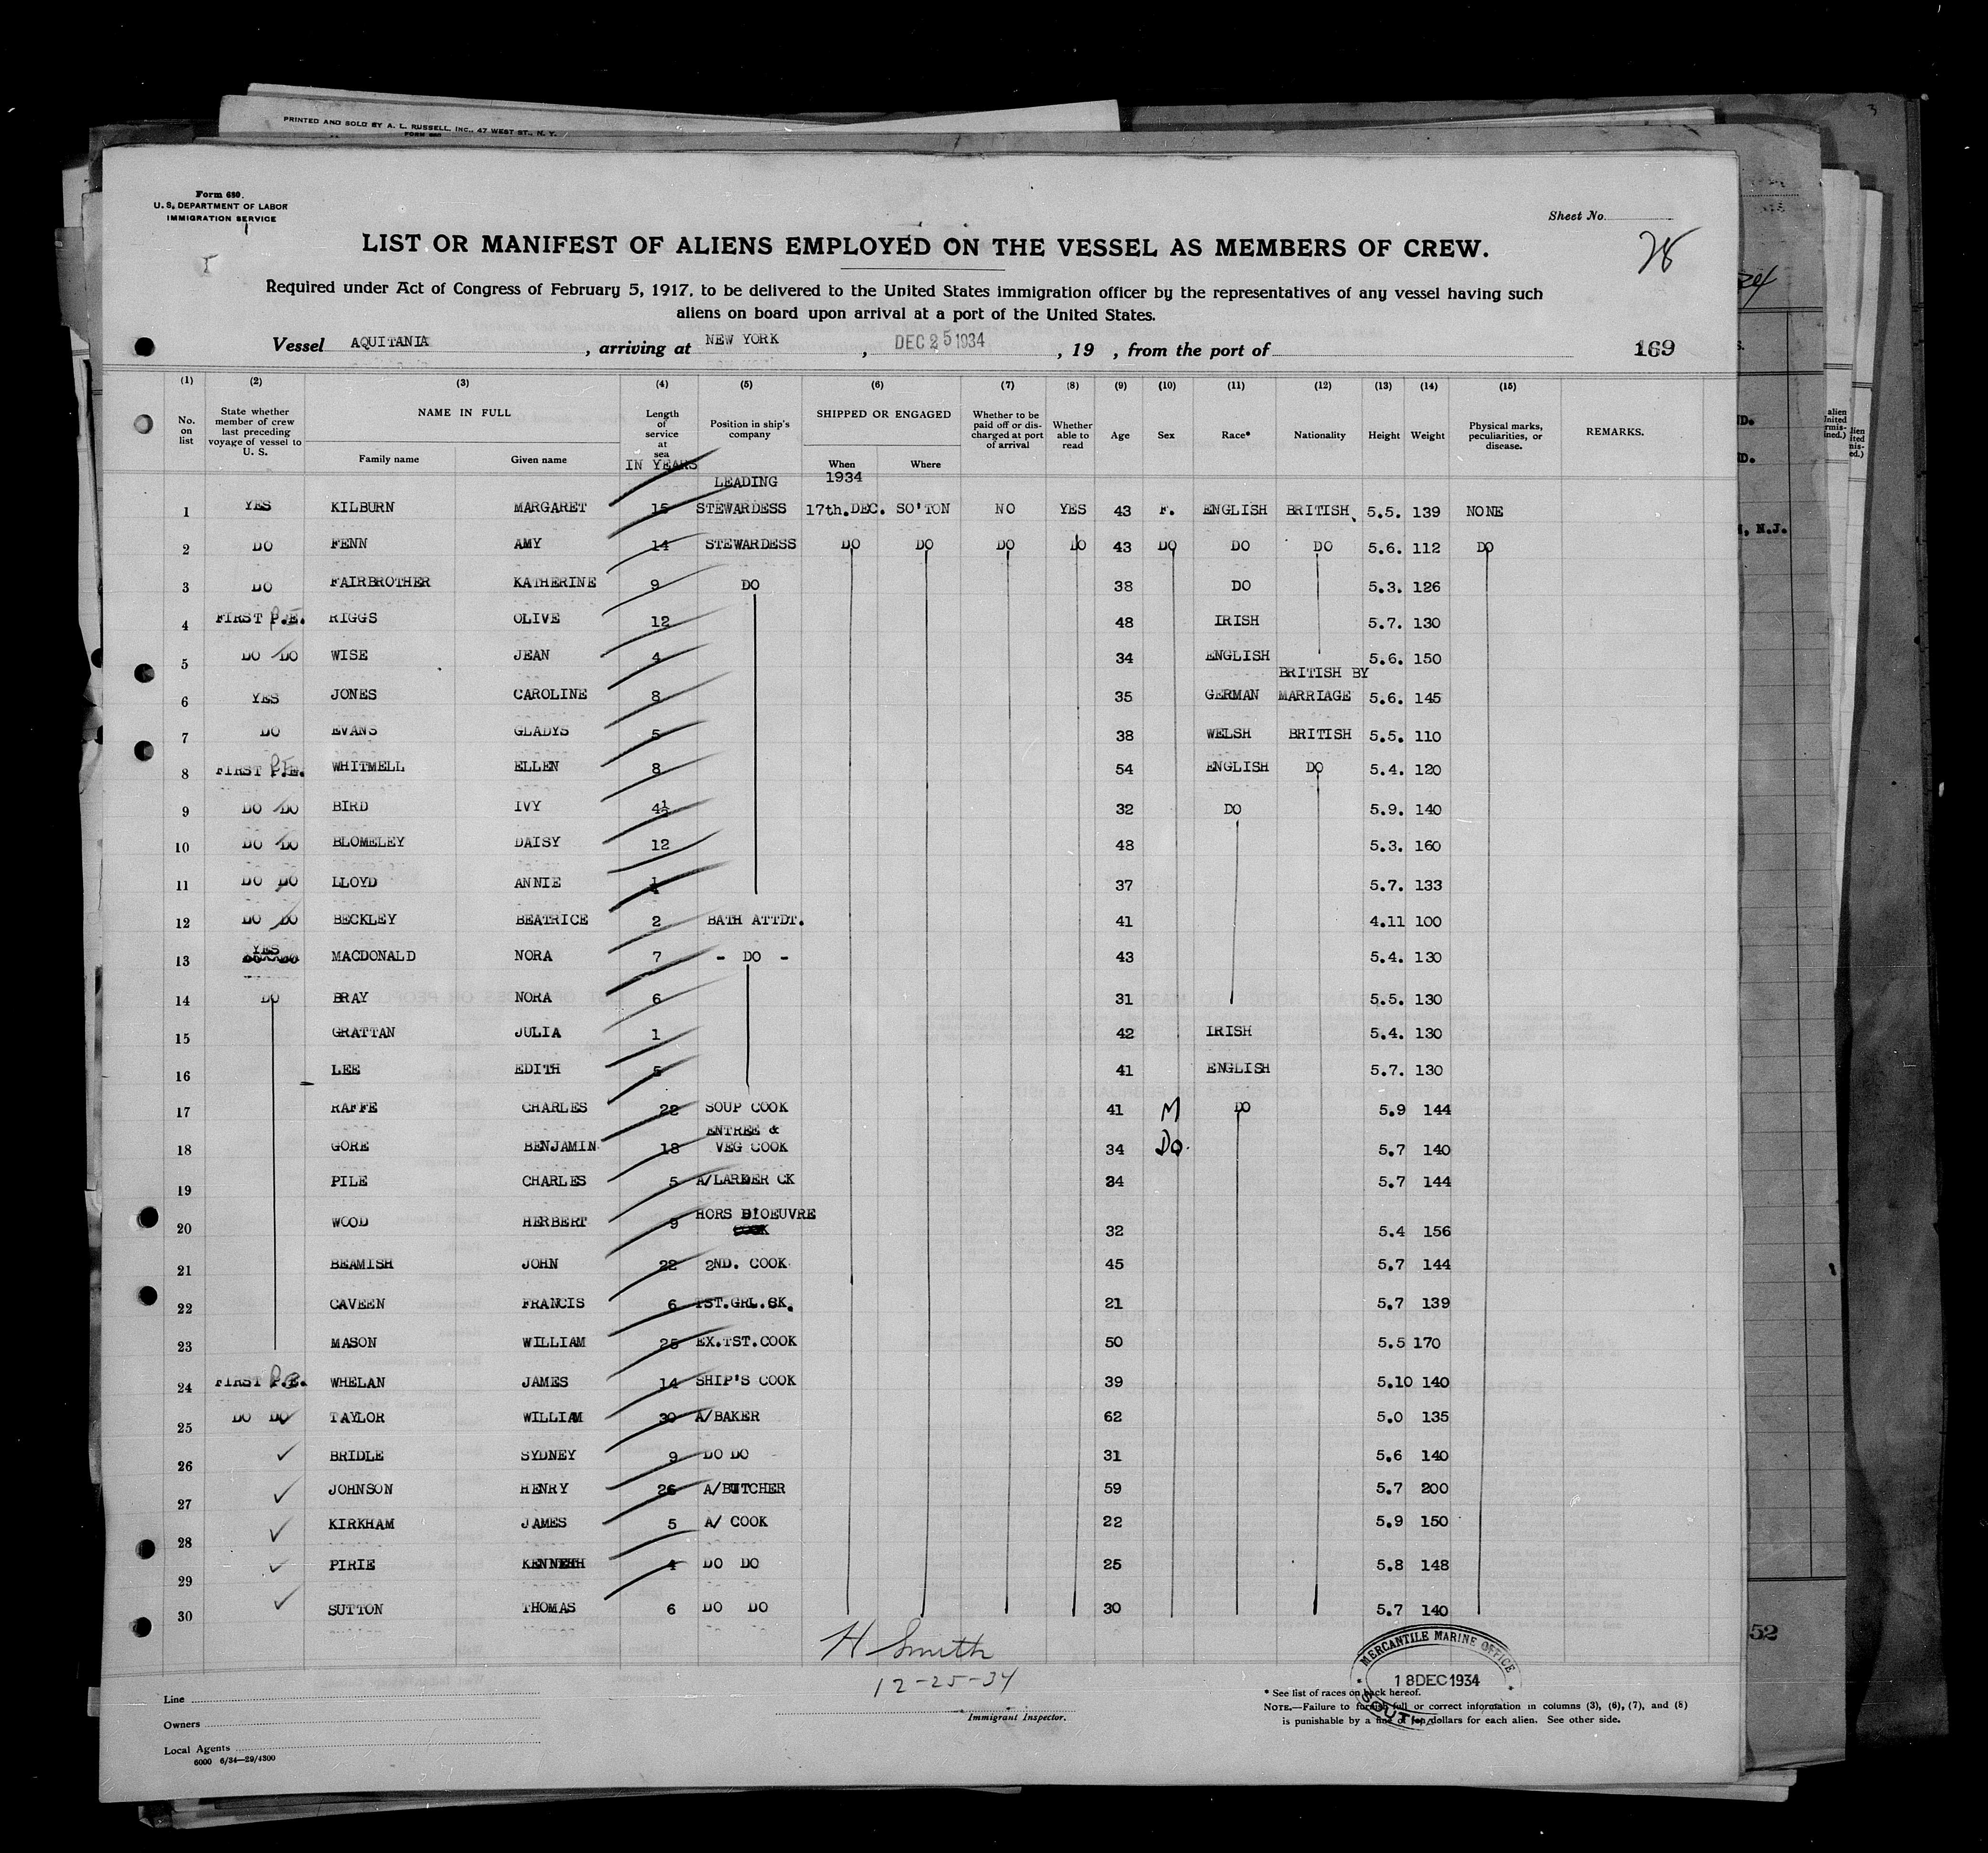 PRINTED AND SOLD BY A. L. RUSSELL, INC., 47 WEST ST., N. Y.
Form 680.
U. S. DEPARTMENT OF LABOR
IMMIGRATION SERVICE
Sheet No.
LIST OR MANIFEST OF ALIENS EMPLOYED ON THE VESSEL AS MEMBERS OF CREW.
28
Required under Act of Congress of February 5, 1917, to be delivered to the United States immigration officer by the representatives of any vessel having such
aliens on board upon arrival at a port of the United States.
Vessel AQUITANIA, arriving at NEW YORK, DEC 25 1934, 19 , from the port of 169
(1) (2) (3) (4) (5) (6) (7) (8) (9) (10) (11) (12) (13) (14) (15)
No. on list State whether member of crew last preceding voyage of vessel to U. S. NAME IN FULL Family name Given name Length of service at sea IN YEARS Position in ship's company SHIPPED OR ENGAGED When Where Whether to be paid off or discharged at port of arrival Whether able to read Age Sex Race* Nationality Height Weight Physical marks, peculiarities, or disease. REMARKS.
LEADING 1934
1 YES KILBURN MARGARET 15 STEWARDESS 17th.DEC. SO'TON NO YES 43 F. ENGLISH BRITISH 5.5. 139 NONE
2 DO FENN AMY 14 STEWARDESS DO DO DO DO 43 DO DO DO 5.6. 112 DO
3 DO FAIRBROTHER KATHERINE 9 DO 38 DO 5.3. 126
4 FIRST P.E. RIGGS OLIVE 12 48 IRISH 5.7. 130
5 DO DO WISE JEAN 4 34 ENGLISH 5.6. 150
BRITISH BY
6 YES JONES CAROLINE 8 35 GERMAN MARRIAGE 5.6. 145
7 DO EVANS GLADYS 5 38 WELSH BRITISH 5.5. 110
8 FIRST P.E. WHITMELL ELLEN 8 54 ENGLISH DO 5.4. 120
9 DO DO BIRD IVY 4½ 32 DO 5.9. 140
10 DO DO BLOMELEY DAISY 12 48 5.3. 160
11 DO DO LLOYD ANNIE 37 5.7. 133
12 DO DO BECKLEY BEATRICE 2 BATH ATTDT. 41 4.11 100
13 YES MACDONALD NORA 7 - DO - 43 5.4. 130
14 DO BRAY NORA 6 31 5.5. 130
15 GRATTAN JULIA 1 42 IRISH 5.4. 130
16 LEE EDITH 5 41 ENGLISH 5.7. 130
17 RAFFE CHARLES 22 SOUP COOK 41 M DO 5.9 144
ENTREE &
18 GORE BENJAMIN 18 VEG COOK 34 Do. 5.7 140
19 PILE CHARLES 5 A/LARDER CK 34 5.7 144
HORS D'OEUVRE
20 WOOD HERBERT 9 COOK 32 5.4 156
21 BEAMISH JOHN 22 2ND. COOK 45 5.7 144
22 CAVEEN FRANCIS 6 TST.GRL.CK. 21 5.7 139
23 MASON WILLIAM 25 EX.TST.COOK 50 5.5 170
24 FIRST P.E. WHELAN JAMES 14 SHIP'S COOK 39 5.10 140
25 DO DO TAYLOR WILLIAM 30 A/BAKER 62 5.0 135
26 ✓ BRIDLE SYDNEY 9 DO DO 31 5.6 140
27 ✓ JOHNSON HENRY 26 A/BUTCHER 59 5.7 200
28 ✓ KIRKHAM JAMES 5 A/ COOK 22 5.9 150
29 ✓ PIRIE KENNETH 4 DO DO 25 5.8 148
30 ✓ SUTTON THOMAS 6 DO DO 30 5.7 140
H Smith
12-25-34
Immigrant Inspector.
MERCANTILE MARINE OFFICE
18 DEC 1934
Line
Owners
Local Agents
6000 6/34—29/4300
* See list of races on back hereof.
NOTE.—Failure to furnish full or correct information in columns (3), (6), (7), and (8)
is punishable by a fine of ten dollars for each alien. See other side.
52
N.J.